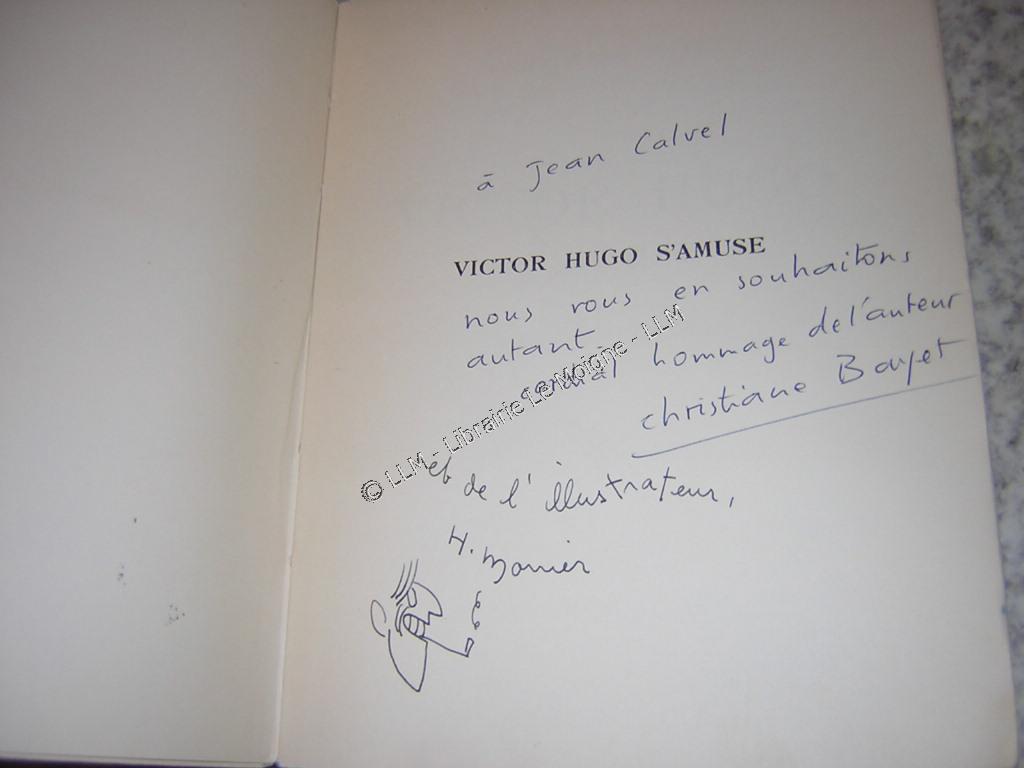 à Jean Calvel
VICTOR HUGO S'AMUSE
nous vous en souhaitons
autant
hommage de l'auteur
christiane
et de l'illustrateur,
H. Monier
© LLM - Librairie Le Moigne - LLM